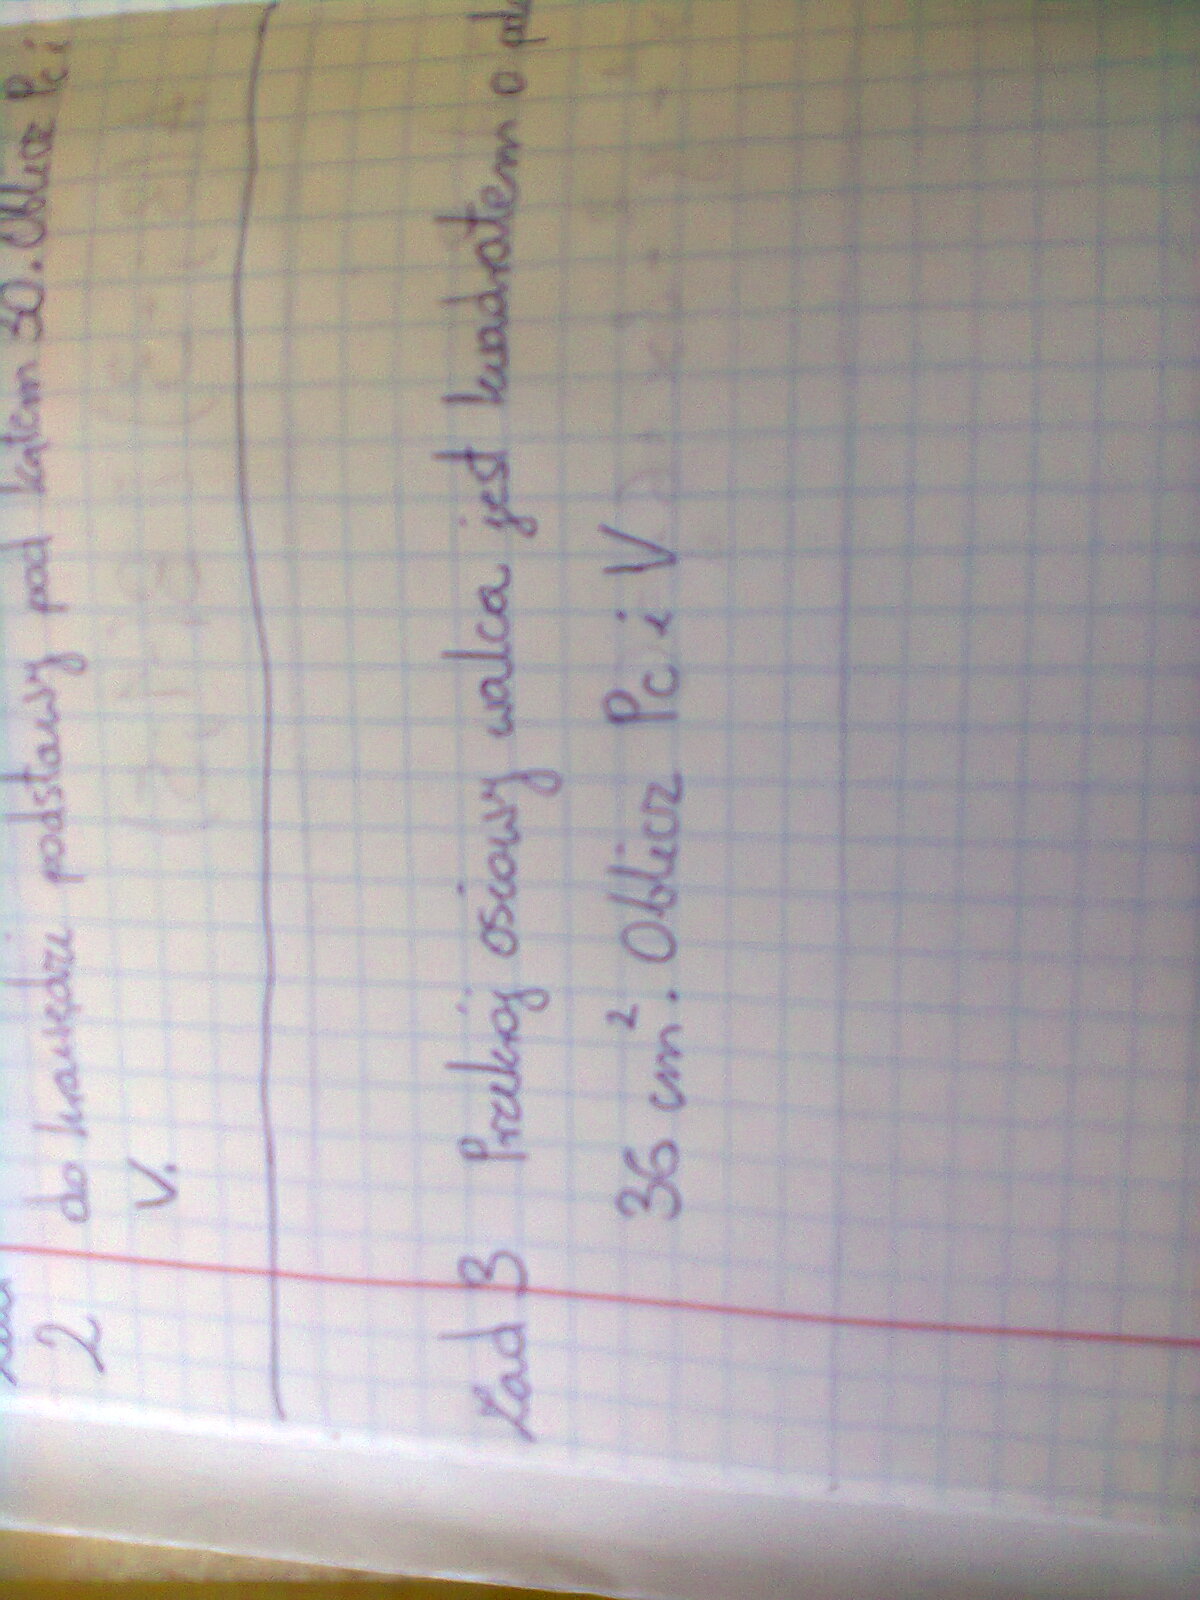 2 do krawędzi podstawy pod kątem 30. Oblicz Pc i
V.
Zad 3 Przekrój osiowy walca jest kwadratem o
36 cm². Oblicz Pc i V